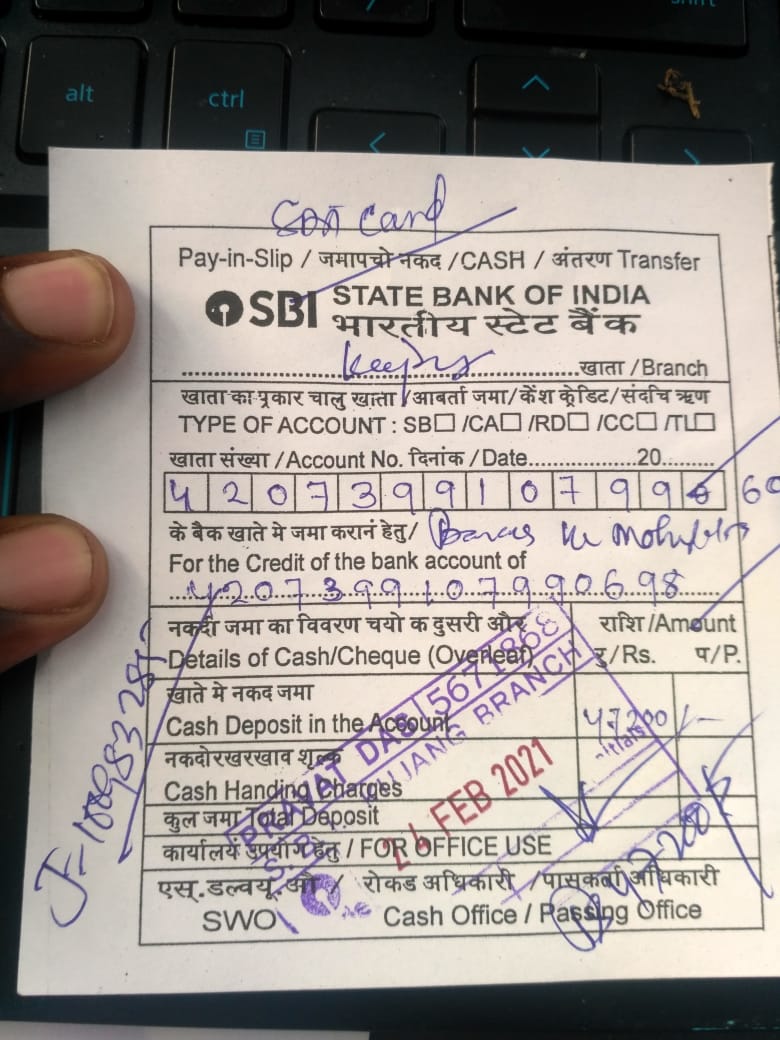 alt
ctrl
shift
Card
Pay-in-Slip / जमापचो नकद /CASH / अंतरण Transfer
SBI STATE BANK OF INDIA
भारतीय स्टेट बैंक
खाता /Branch
खाता का प्रकार चालु खाता /आबर्ता जमा/केंश क्रेडिट/संदचि ऋण
TYPE OF ACCOUNT : SB□ /CA□ /RD□ /CC□ /TL□
खाता संख्या /Account No. दिनांक /Date....................20.........
4 2 0 7 3 9 9 1 0 7 9 9
के बैक खाते मे जमा करानं हेतु/
For the Credit of the bank account of
4207399107990698
नकदी जमा का विवरण चयो क दुसरी और राशि /Amount
Details of Cash/Cheque (Overleaf) रु/Rs. प/P.
खाते मे नकद जमा
Cash Deposit in the Account 47200/-
नकदोरखरखाव शूल्क
Cash Handing Charges
कुल जमा Total Deposit
कार्यालयें उपयोग हेतु / FOR OFFICE USE
एस.डल्वयू.ओ / रोकड अधिकारी /पासकर्ता अधिकारी
SWO Cash Office / Passing Office
PRAVAT DAS 5671868
BRANCH
24 FEB 2021